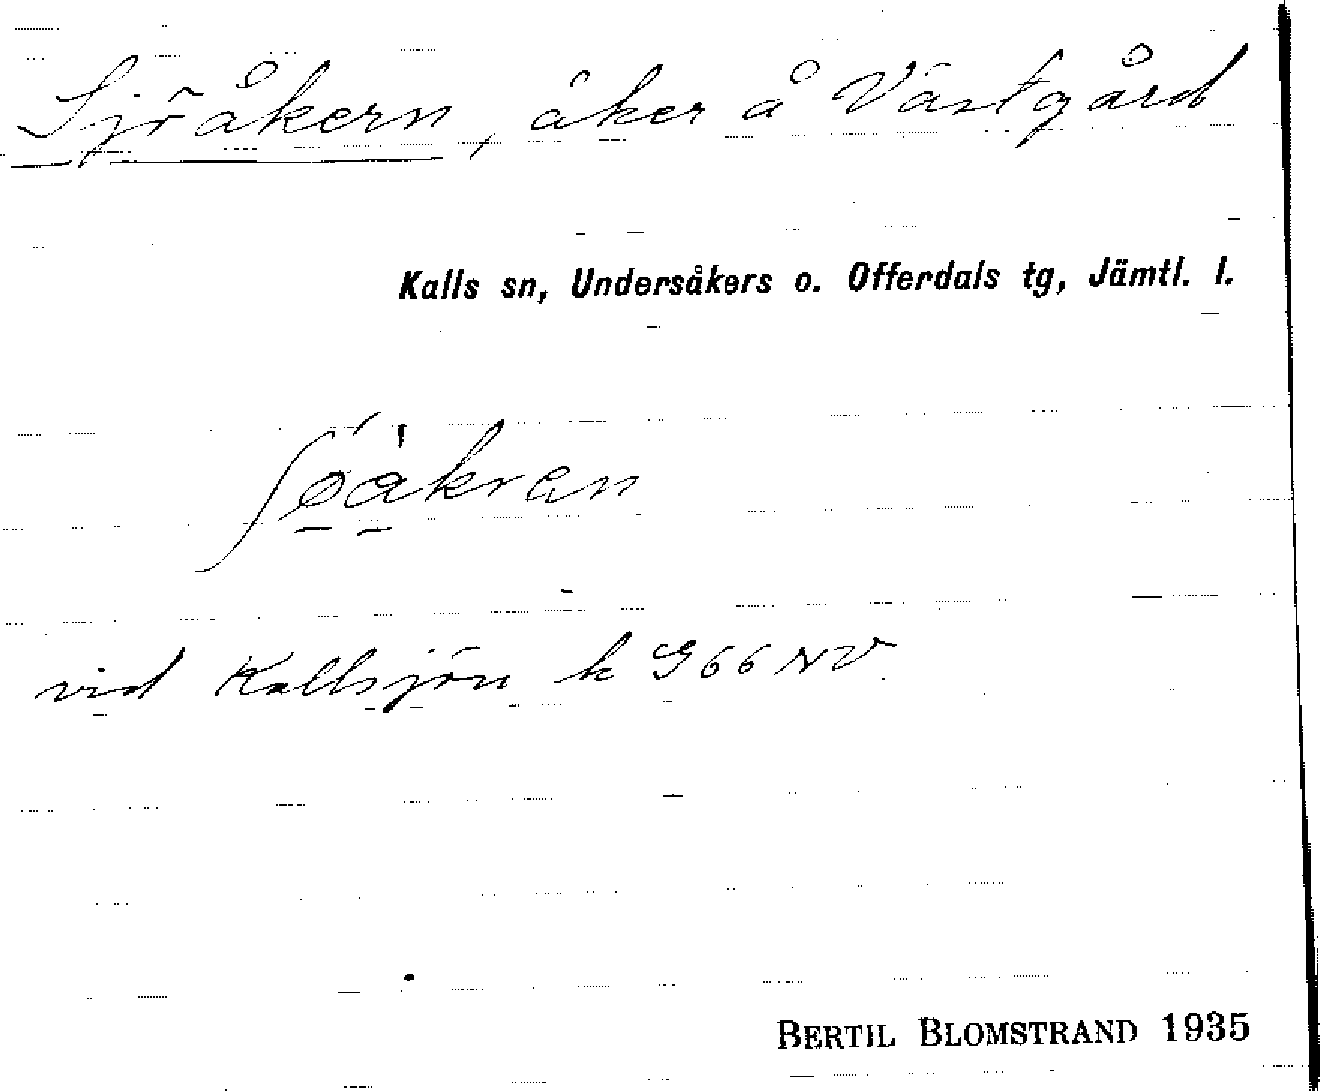 Sjöåkern, åker å Västgård
Kalls sn, Undersåkers o. Offerdals tg, Jämtl. l.
vid Kallsjön k G66NV
BERTIL BLOMSTRAND 1935